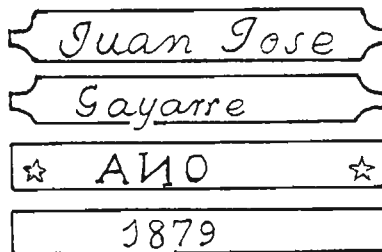 Juan Jose
Gayarre
☆ AИO ☆
1879